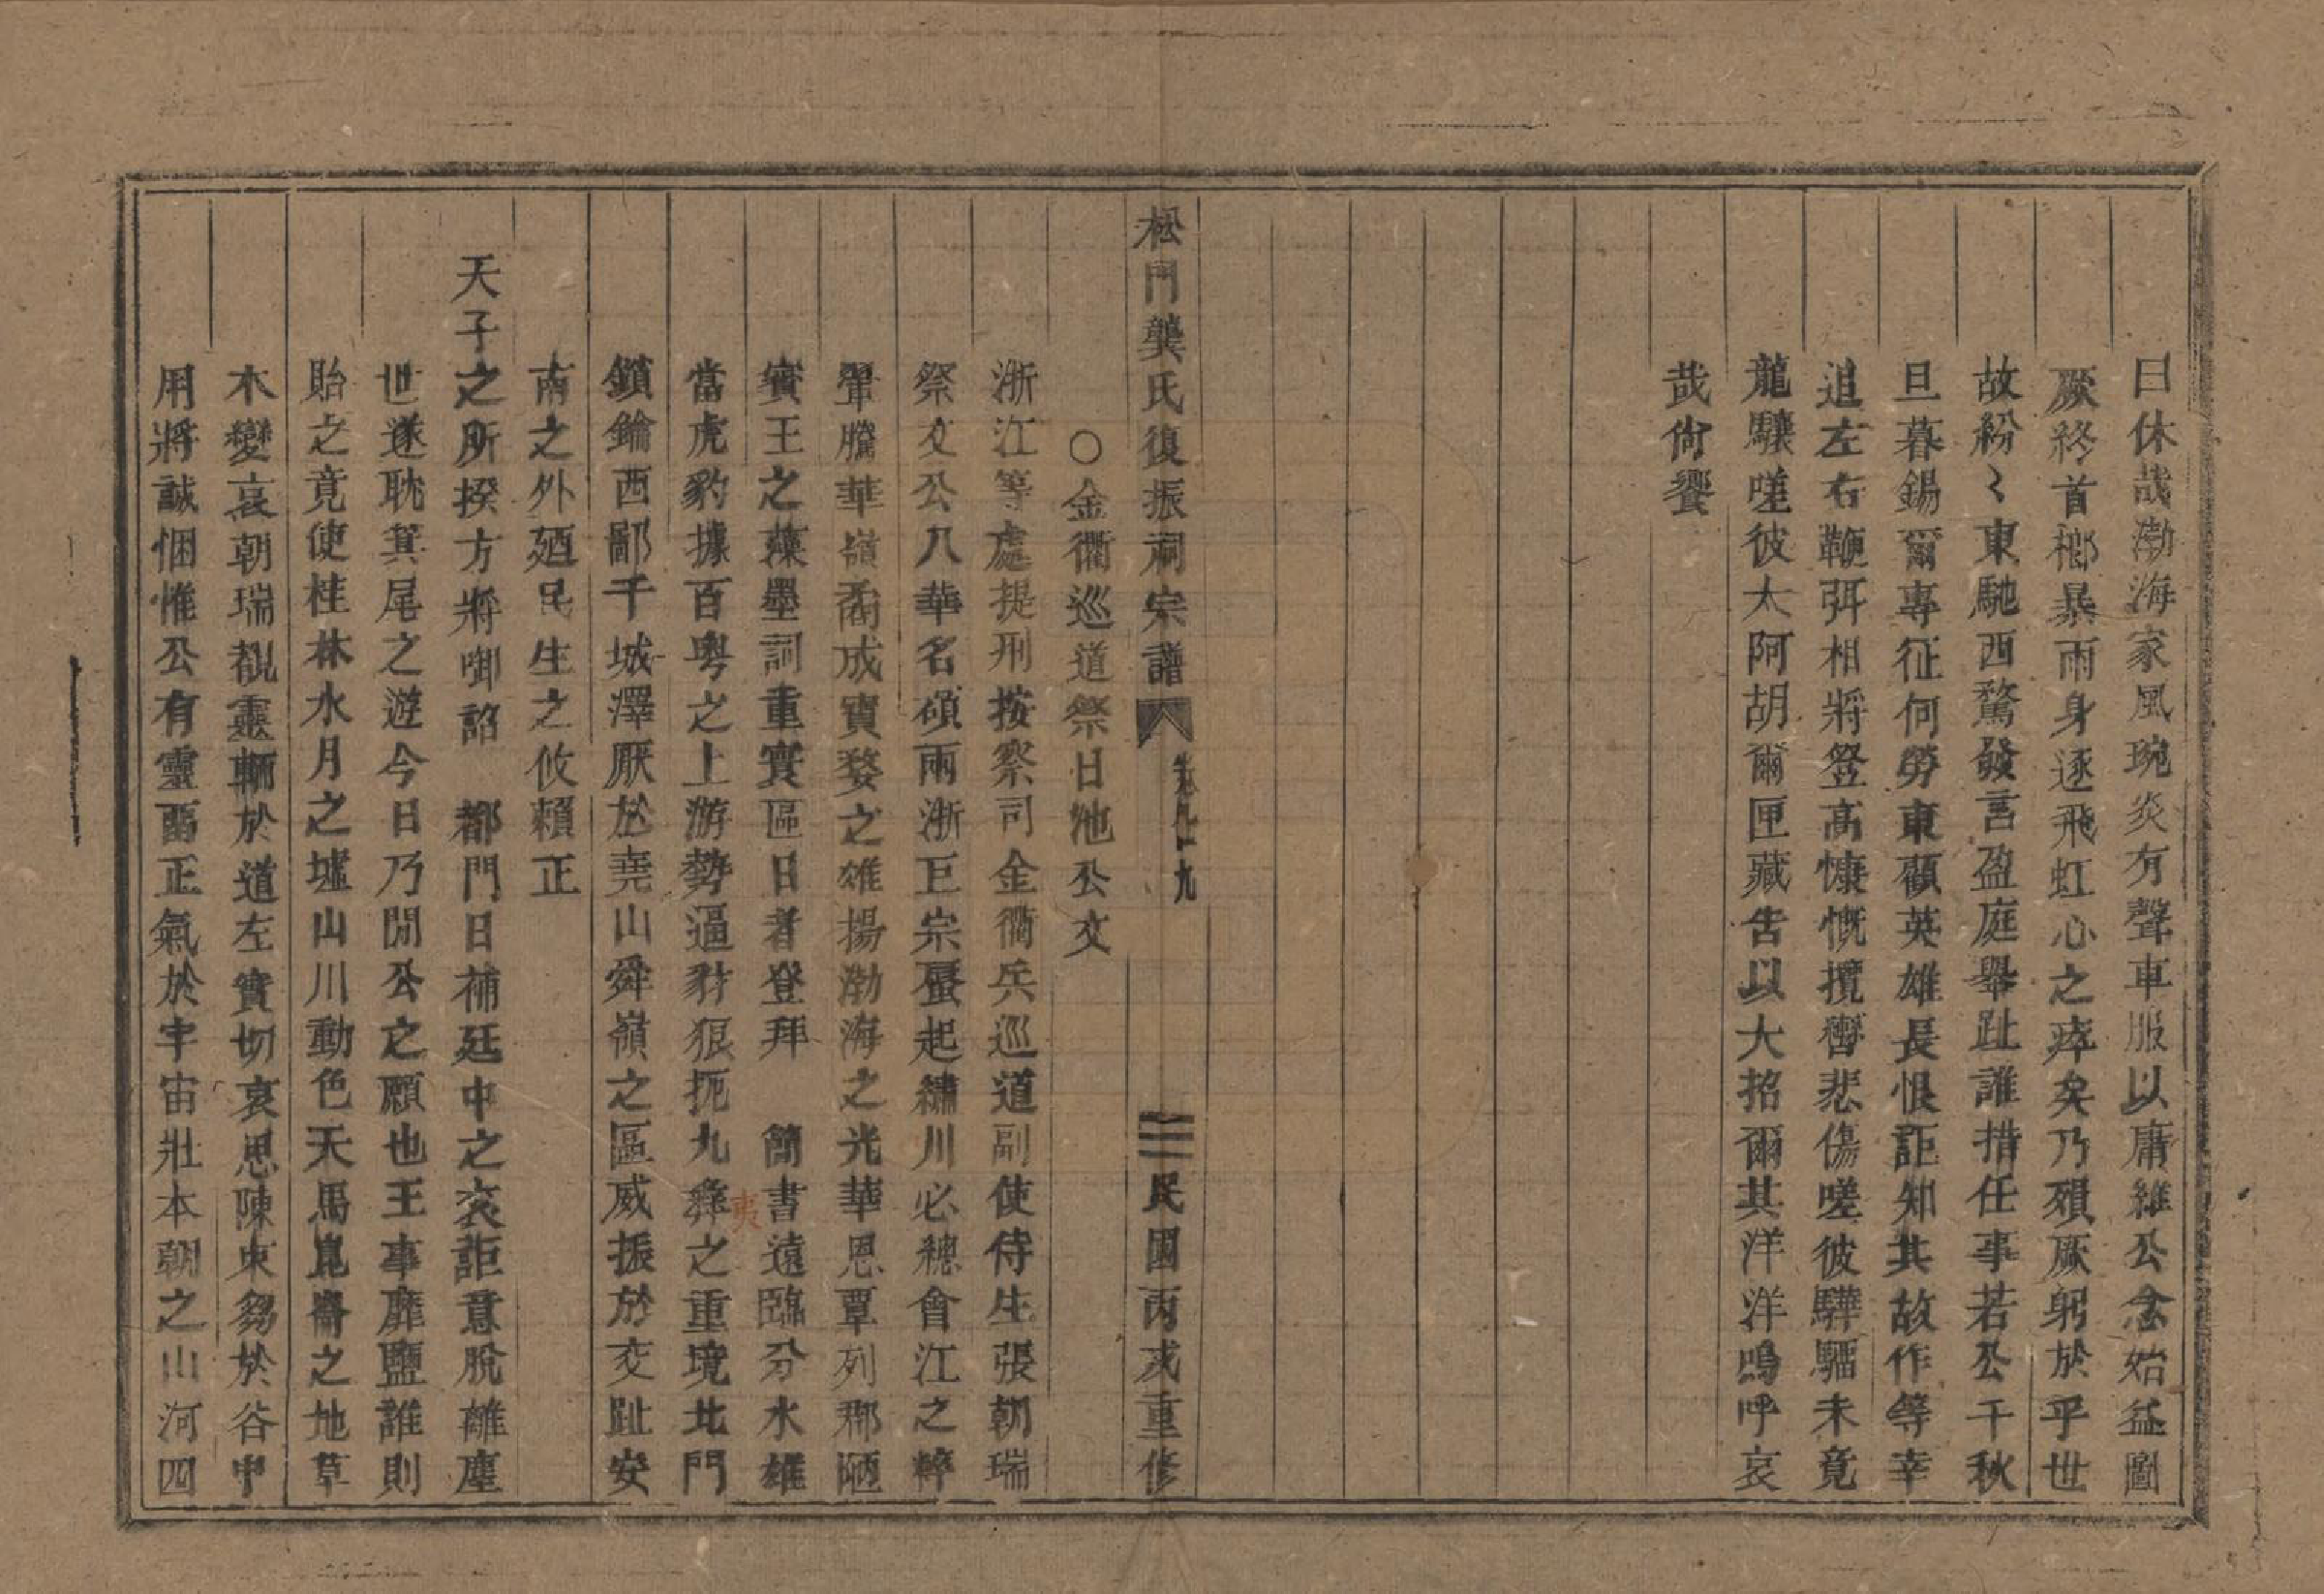 曰休哉渤海家風琬炎有聲車服以庸維公念始益圖
厥終首榔暴雨身逐飛虹心之瘁矣乃殞厥躬於乎世
故紛〻東馳西騖發言盈庭舉趾誰措任事若公千秋
旦暮錫爾專征何勞東顧英雄長恨詎知其故作等幸
追左右鞭弭相將登高慷慨攬轡悲傷嗟彼驊騮未竟
龍驤嗟彼太阿胡爾匣藏告以大招爾其洋洋嗚呼哀
哉尙饗
松門龔氏復振祠宗譜 卷九 九 民國丙戌重修
○金衢巡道祭日池公文
浙江等處提刑按察司金衢兵巡道副使侍生張朝瑞
祭文公八華名碩兩浙巨宗蜃起繡川必穗會江之粹
翬騰華嶺矞成寶婺之雄揚渤海之光華恩覃列郡陋
賓王之藻墨詞重實區日者登拜 簡書遠臨分水雄
當虎豹據百粵之上游勢逼豺狠扼九彝夷之重境北門
鎖鑰西鄙千城澤厭於堯山舜嶺之區威振於交趾安
南之外廼民生之攸賴正
天子之所揆方將啣詔 都門日補廷中之衮詎意脫離塵
世遂耽箕尾之遊今日乃閒公之願也王事靡鹽誰則
貽之竟使桂林水月之墟山川動色天馬崑崙之地草
木變哀朝瑞覩靈輀於道左實切哀思陳束芻於谷中
用將誠悃惟公有靈畱正氣於宇宙壯本朝之山河四